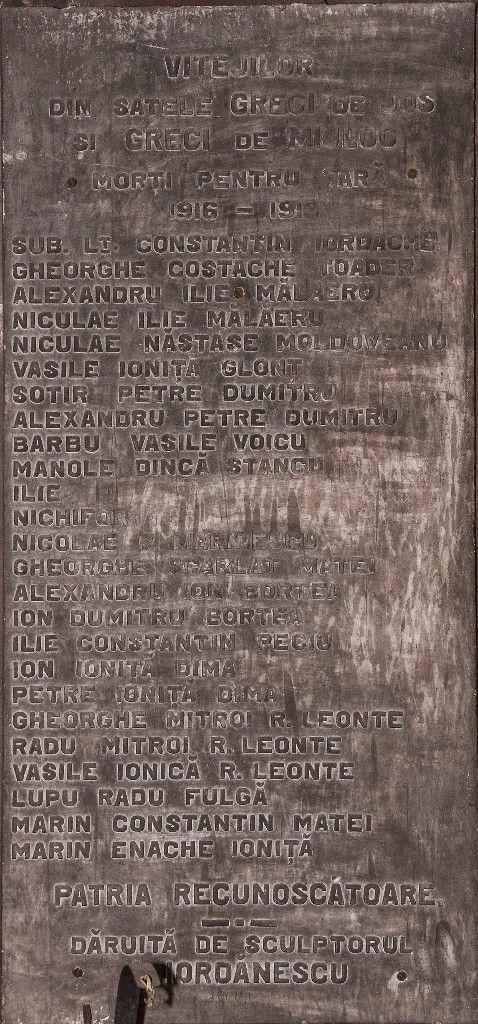 VITEJILOR
DIN SATELE GRECI DE JOS
SI GRECI DE MIJLOC
MORȚI PENTRU ȚARĂ
1916 – 1919
SUB. LT. CONSTANTIN IORDACHE
GHEORGHE COSTACHE TOADER
ALEXANDRU ILIE MĂLAERU
NICULAE ILIE MĂLAERU
NICULAE NĂSTASE MOLDOVEANU
VASILE IONIȚĂ GLONȚ
SOTIR PETRE DUMITRU
ALEXANDRU PETRE DUMITRU
BARBU VASILE VOICU
MANOLE DINCĂ STANCU
ILIE
NICHIFOR
NICOLAE MARINESCU
GHEORGHE SCARLAT MATEI
ALEXANDRU ION BORTEA
ION DUMITRU BORTEA
ILIE CONSTANTIN PECIU
ION IONIȚĂ DIMA
PETRE IONIȚĂ DIMA
GHEORGHE MITROI R. LEONTE
RADU MITROI R. LEONTE
VASILE IONICĂ R. LEONTE
LUPU RADU FULGĂ
MARIN CONSTANTIN MATEI
MARIN ENACHE IONIȚĂ
PATRIA RECUNOSCĂTOARE.
DĂRUITĂ DE SCULPTORUL
IORDĂNESCU